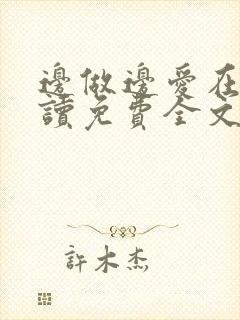 邊做邊愛在
讀免費全文
許木杰